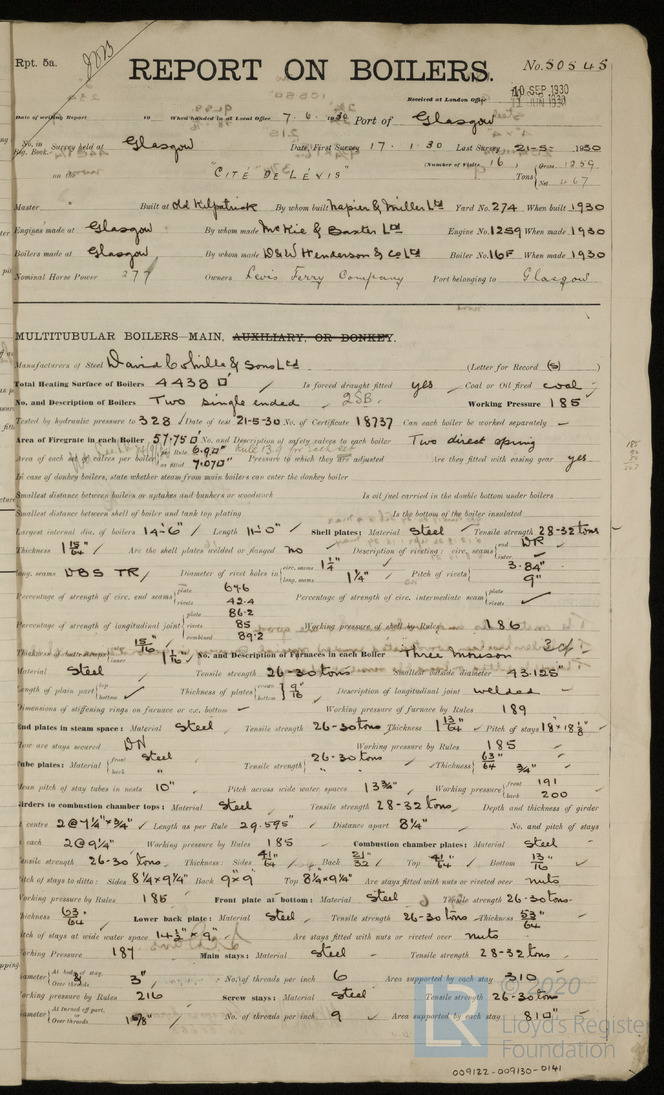 Rpt. 5a.
REPORT ON BOILERS.
No. 50545
Received at London Office
10 SEP 1930
11 JUN 1930
Date of writing Report 19 When handed in at Local Office 7. 6. 1930 Port of Glasgow
No. in Reg. Book. Survey held at Glasgow Date, First Survey 17. 1. 30 Last Survey 21-5- 1930
on the "CITÉ DE LÉVIS" (Number of Visits 16) Tons Gross 1259 Net 467
Master Built at Old Kilpatrick By whom built Napier & Miller Ltd Yard No. 274 When built 1930
Engines made at Glasgow By whom made McKie & Baxter Ltd Engine No. 1259 When made 1930
Boilers made at Glasgow By whom made D & W Henderson & Co Ltd Boiler No. 16F When made 1930
Nominal Horse Power 277 Owners Levis Ferry Company Port belonging to Glasgow
MULTITUBULAR BOILERS—MAIN, AUXILIARY, OR DONKEY.
Manufacturers of Steel David Colville & Sons Ltd (Letter for Record (S))
Total Heating Surface of Boilers 4438 □' Is forced draught fitted yes Coal or Oil fired coal
No. and Description of Boilers Two single ended 2SB. Working Pressure 185
Tested by hydraulic pressure to 328 Date of test 21-5-30 No. of Certificate 18737 Can each boiler be worked separately —
Area of Firegrate in each Boiler 57.75 □' No. and Description of safety valves to each boiler Two direct spring
Area of each set of valves per boiler per Rule 6.9□" as fitted 7.07□" Pressure to which they are adjusted Are they fitted with easing gear yes
In case of donkey boilers, state whether steam from main boilers can enter the donkey boiler
Smallest distance between boilers or uptakes and bunkers or woodwork Is oil fuel carried in the double bottom under boilers
Smallest distance between shell of boiler and tank top plating Is the bottom of the boiler insulated
Largest internal dia. of boilers 14'-6" Length 11'-0" Shell plates: Material Steel Tensile strength 28-32 tons
Thickness 1 15/64" Are the shell plates welded or flanged no Description of riveting: circ. seams end DR inter.
long. seams DBS TR Diameter of rivet holes in circ. seams 1¼" long. seams 1¼" Pitch of rivets 3.84" 9"
Percentage of strength of circ. end seams plate 67.6 rivets 42.4 Percentage of strength of circ. intermediate seam plate rivets
Percentage of strength of longitudinal joint plate 86.2 rivets 85 combined 89.2 Working pressure of shell by Rules 186
Thickness of butt straps outer 15/16" inner 1 1/16" No. and Description of Furnaces in each Boiler Three Morison 3cf
Material Steel Tensile strength 26-30 tons Smallest outside diameter 43.125"
Length of plain part top bottom Thickness of plates crown bottom 9/16" Description of longitudinal joint welded
Dimensions of stiffening rings on furnace or c.c. bottom Working pressure of furnace by Rules 189
End plates in steam space: Material Steel Tensile strength 26-30 tons Thickness 1 13/64" Pitch of stays 18" × 18⅛"
How are stays secured DN Working pressure by Rules 185
Tube plates: Material front Steel back " Tensile strength 26-30 tons " Thickness 63/64" ¾"
Mean pitch of stay tubes in nests 10" Pitch across wide water spaces 13¾" Working pressure front 191 back 200
Girders to combustion chamber tops: Material Steel Tensile strength 28-32 tons Depth and thickness of girder
at centre 2@7¼" × ¾" Length as per Rule 29.595" Distance apart 8¼" No. and pitch of stays
in each 2@9¼" Working pressure by Rules 185 Combustion chamber plates: Material Steel
Tensile strength 26-30 tons Thickness: Sides 41/64" Back 21/32" Top 41/64" Bottom 13/16"
Pitch of stays to ditto: Sides 8¼ × 9¼" Back 9" × 9" Top 8¼" × 9¼" Are stays fitted with nuts or riveted over nuts
Working pressure by Rules 185 Front plate at bottom: Material Steel Tensile strength 26-30 tons
Thickness 63/64" Lower back plate: Material Steel Tensile strength 26-30 tons Thickness 53/64"
Pitch of stays at wide water space 14½" × 9" Are stays fitted with nuts or riveted over nuts
Working Pressure 187 Main stays: Material Steel Tensile strength 28-32 tons
Diameter At body of stay, & Over threads 3" No. of threads per inch 6 Area supported by each stay 310
Working pressure by Rules 216 Screw stays: Material Steel Tensile strength 26-30 tons
Diameter At turned off part, or Over threads 1⅝" No. of threads per inch 9 Area supported by each stay 81□"
© 2020
LR
Lloyd's Register
Foundation
009122-009130-0141